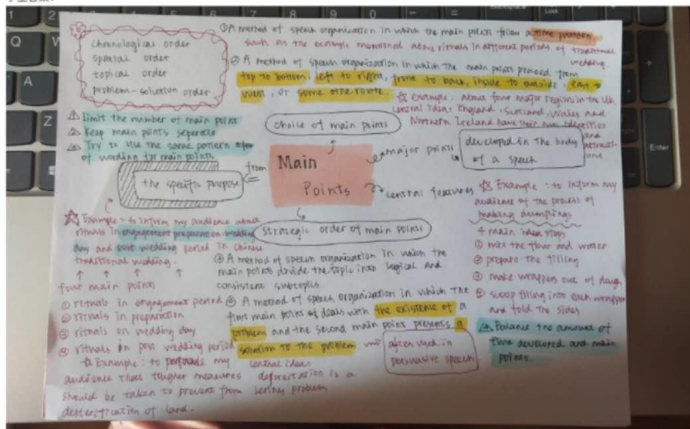 chronological order
spatial order
topical order
problem-solution order
① A method of speech organization in which the main points follow a time pattern
such as the example mentioned above rituals in different periods of traditional
wedding
② A method of speech organization in which the main points proceed from
top to bottom, left to right, front to back, inside to outside, east to
west, or some other route.
☆ Example: about four major regions in the UK
England, Scotland, Wales and
Northern Ireland have their own identities
and
Limit the number of main point
Keep main points separate
Try to use the same pattern
of wording for main points
choice of main points
Main
Points
major points
developed in the body
of a speech
from
the specific propose
central features
☆ Example: to inform my
audience of the process of
making dumplings
4 main steps
① mix the flour and water
② prepare the filling
③ make wrappers out of dough
④ scoop filling into each wrapper
and fold the sides
Balance the amount of
time developed and main
points.
☆ Example: to inform my audience about
rituals in engagement preparation wedding
day and post wedding period in Chinese
traditional wedding.
four main points
① rituals in engagement period
② rituals in preparation
③ rituals on wedding day
④ rituals in post wedding period
strategic order of main points
③ A method of speech organization in which the
main points divide the topic into logical and
consistent subtopics
④ A method of speech organization in which the
first main point deals with the existence of a
problem and the second main point presents a
solution to the problem
often used in
persuasive speech
☆ Example: to persuade my
audience that tougher measures
should be taken to prevent from
desertification of land.
central idea:
deforestation is a
serious problem
Q
A
Enter